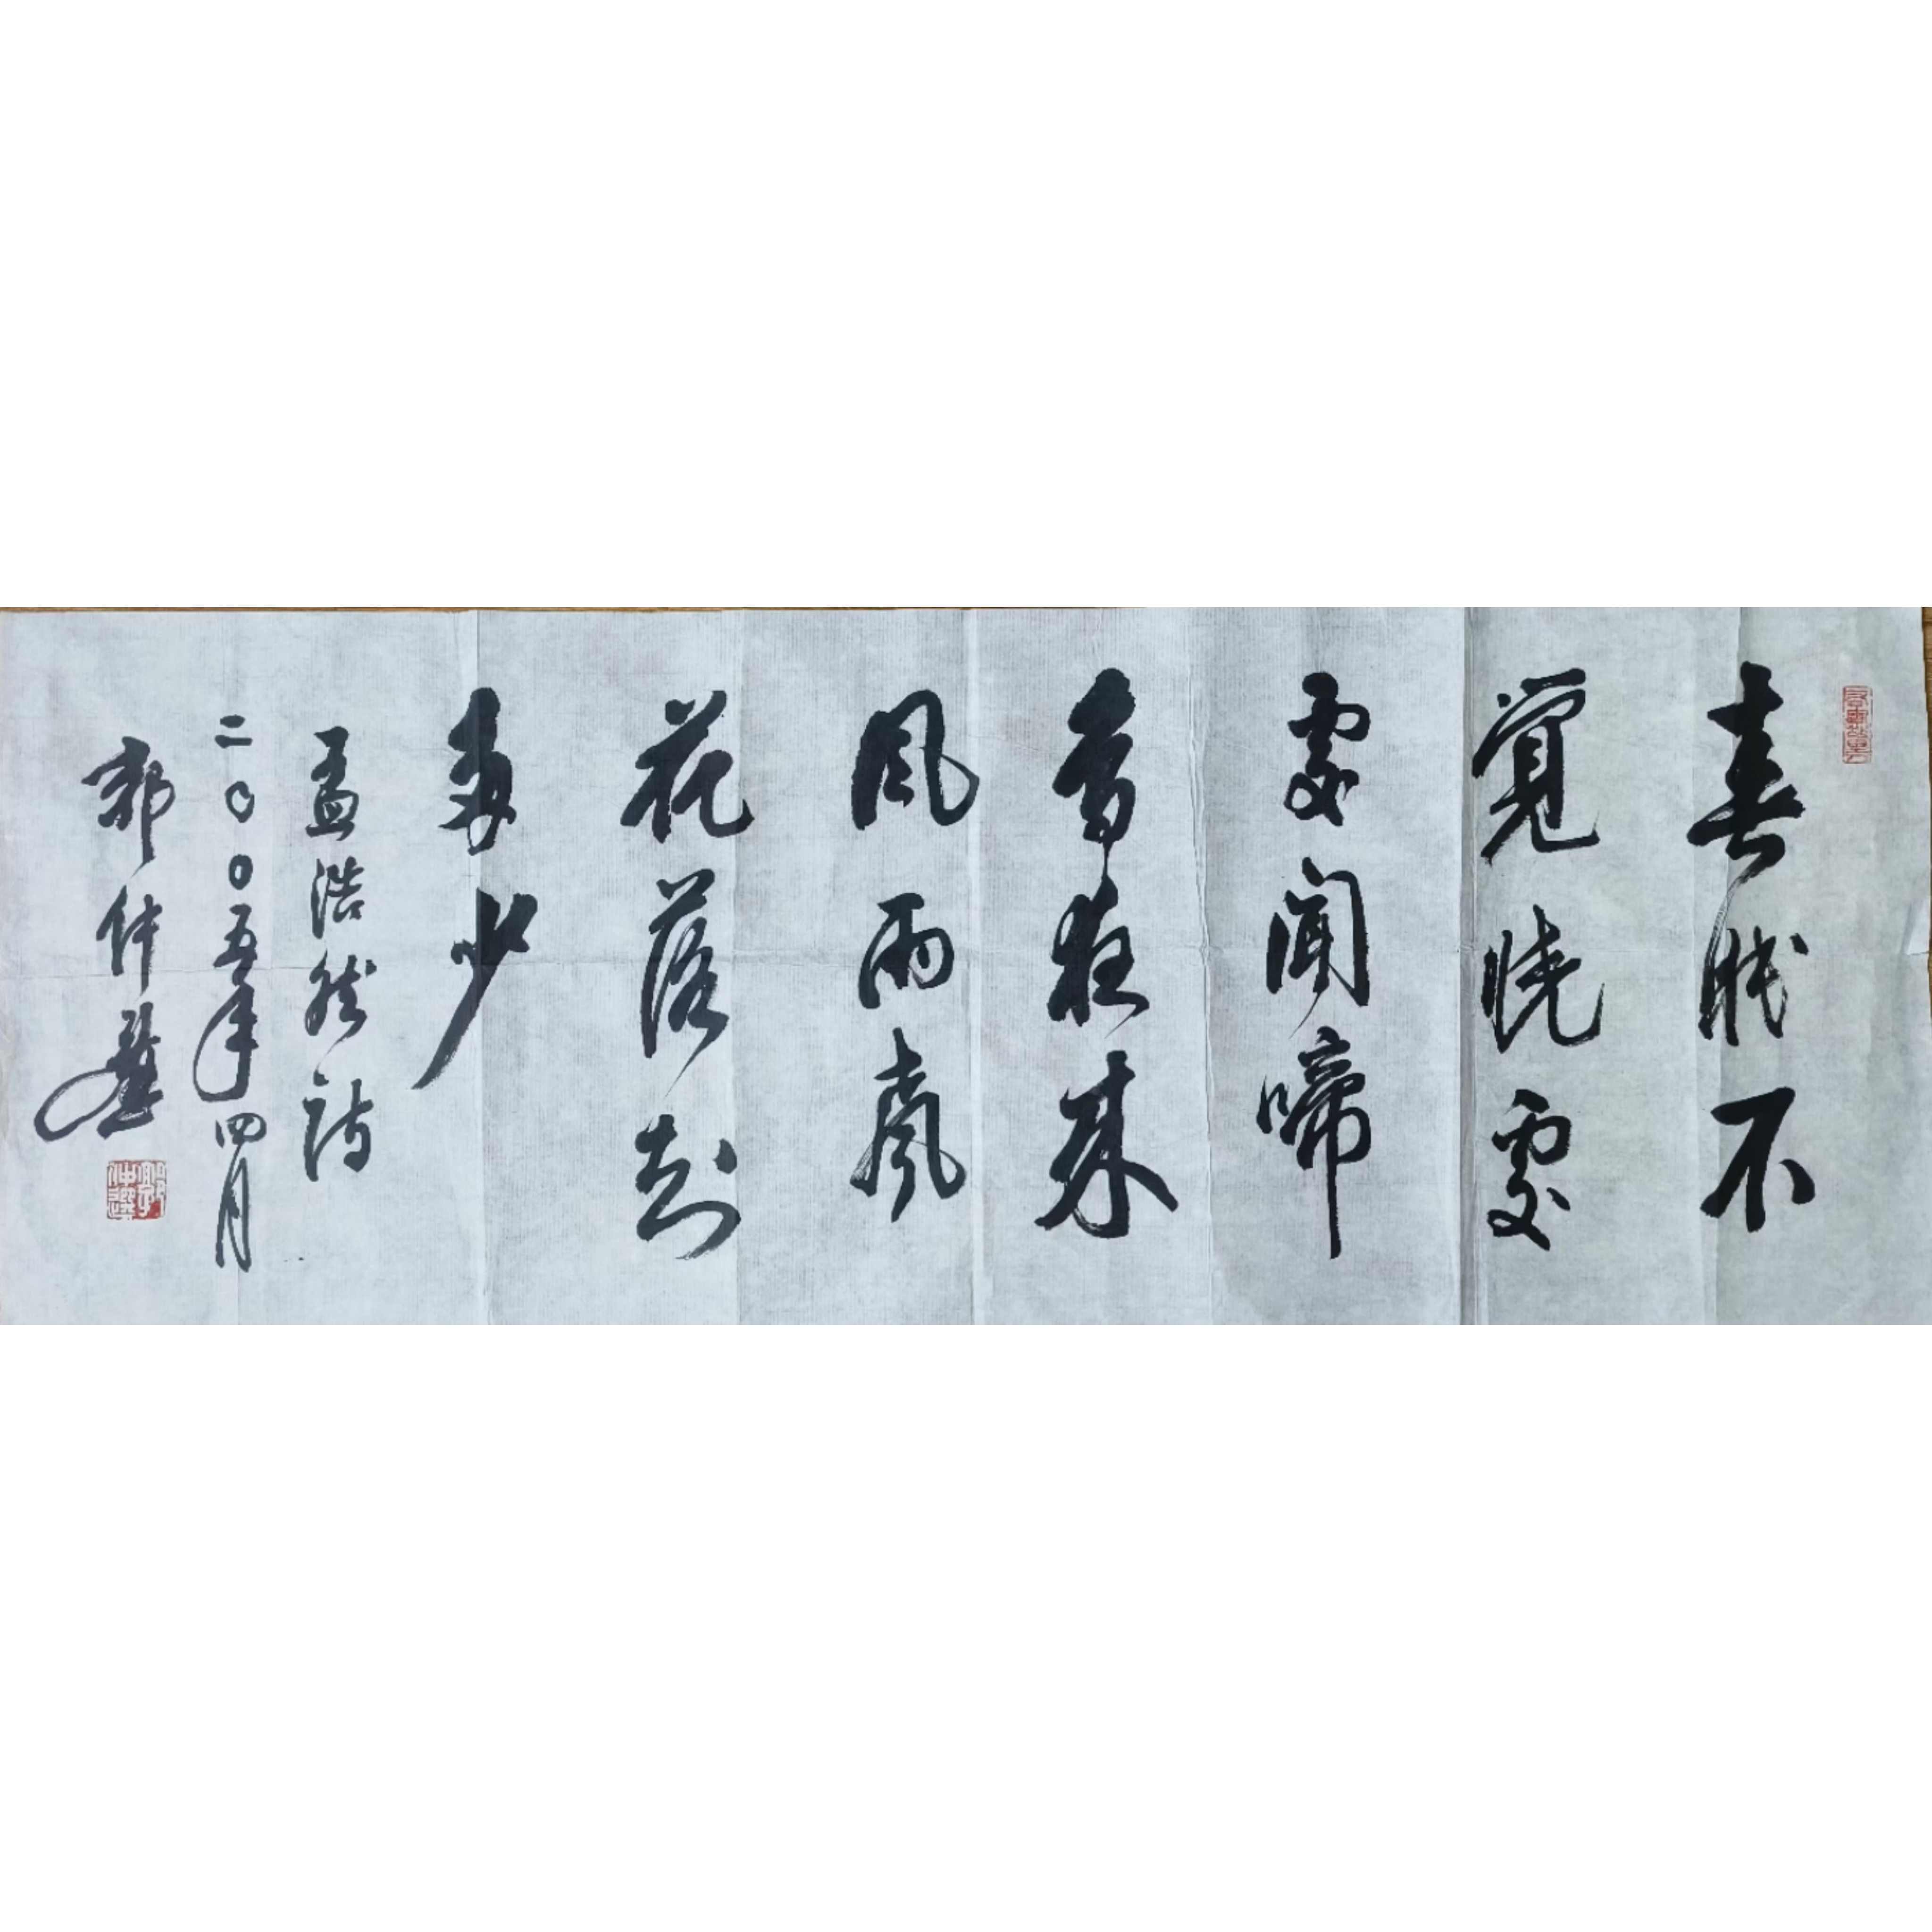 春眠不
覺曉處
處聞啼
鳥夜來
風雨聲
花落知
多少
孟浩然詩
二〇〇五年四月
郭仲選
郭仲選